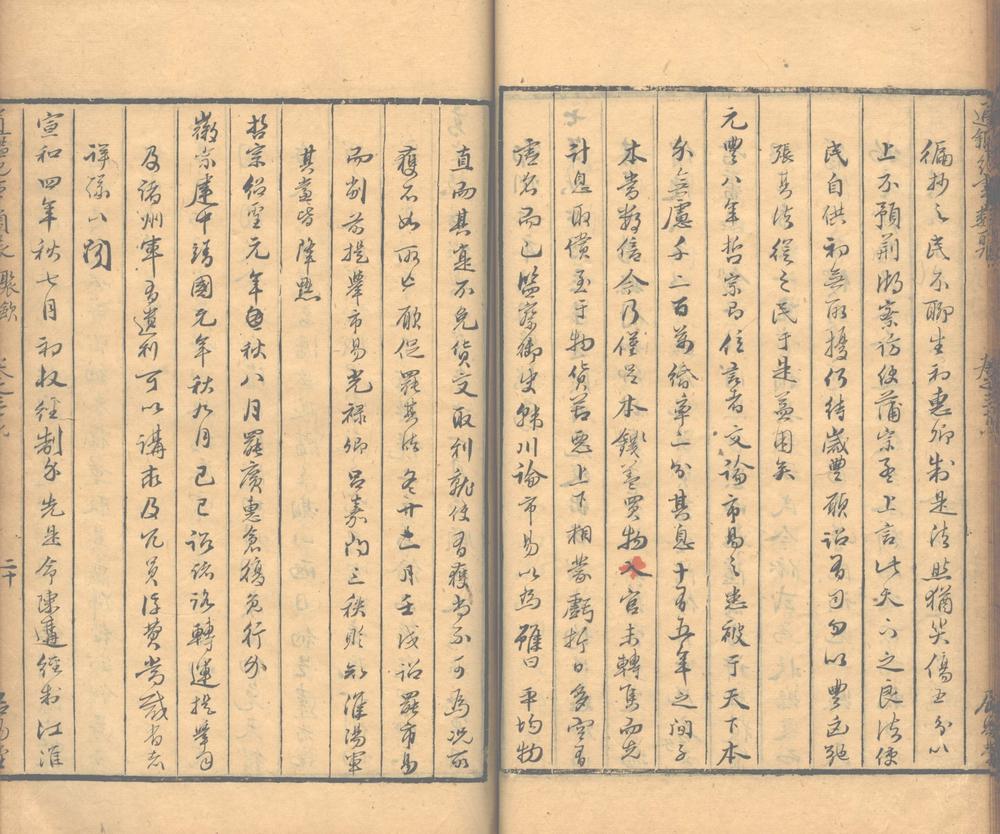 徧抄之民不聊生初惠卿制是法然猶災傷五分以
上不預荊湖察訪使蒲宗孟上言此天下之良法使
民自供初無所擾何待歲豐願詔有司勿以豐凶弛
張其法從之民于是益困矣
元豐八年哲宗即位言者交論市易之患被于天下本
錢無慮千二百萬緡率二分其息十有五年之間子
本當數倍今乃僅足本錢蓋買物入官未轉售而先
計息取償至于物貨苦惡上下相蒙虧折日多空有
虛名而已監察御史韓川論市易以為雖曰平均物
直而其實不免貨交取利就使有獲尚不可為況所
獲不如所亡願促罷其法冬十二月壬戌詔罷市易
而削前提舉市易光祿卿呂嘉問三秩貶知淮陽軍
其黨皆降黜
哲宗紹聖元年秋八月罷廣惠倉復免行錢
徽宗建中靖國元年秋九月己巳詔諸路轉運提舉司
及諸州軍有遺利可以講求及冗員浮費當裁者
詳條以聞
宣和四年秋七月初收經制錢先是命陳遘經制江淮
聚歛
二十